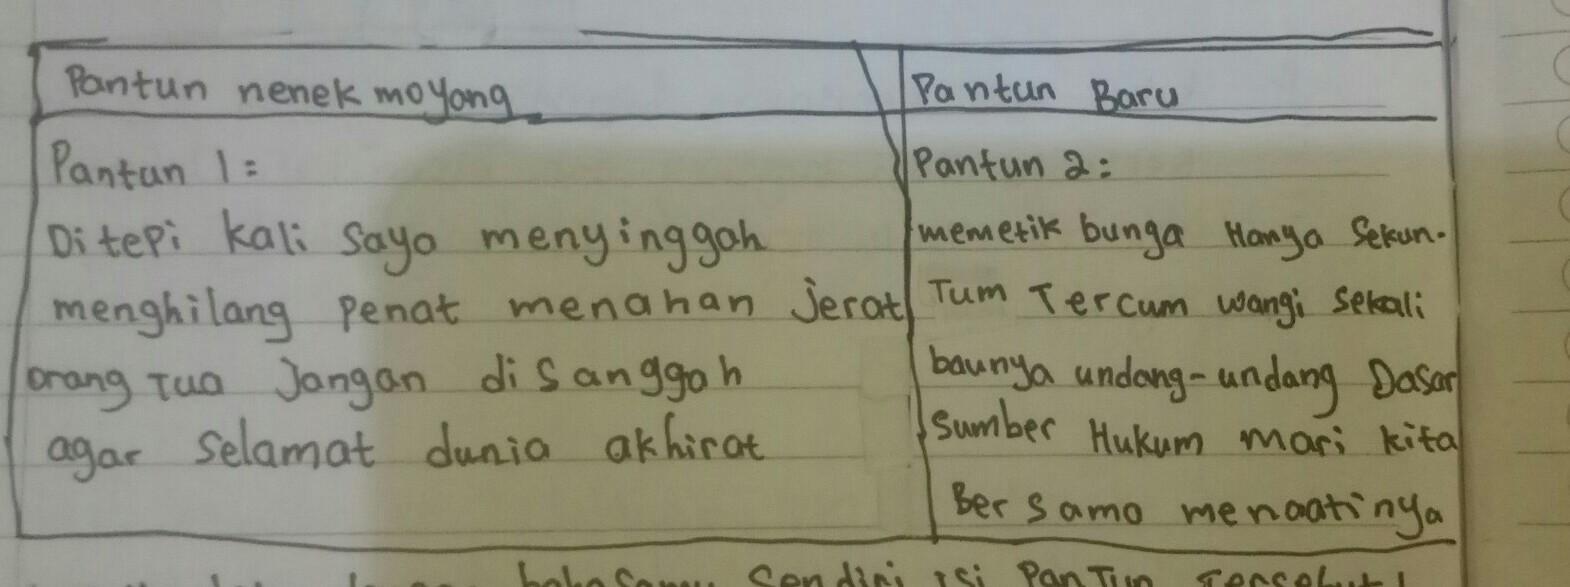 Pantun nenek moyang
Pantun Baru
Pantun 1:
Ditepi kali saya menyinggah
menghilang penat menahan jerat
orang Tua Jangan disanggah
agar selamat dunia akhirat
Pantun 2:
memetik bunga Hanya Sekun-
Tum Tercum wangi sekali
baunya undang-undang Dasar
Sumber Hukum mari kita
Bersama menaatinya
bahasamu Sendiri isi PanTun Tersebut!